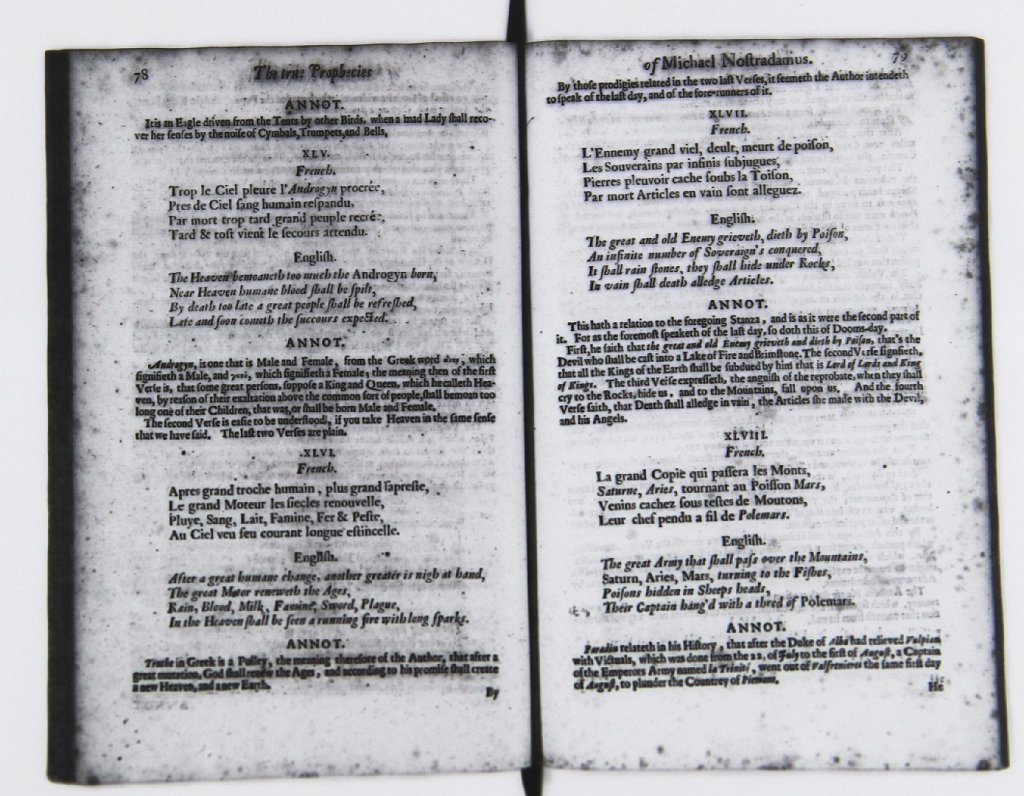 78
The true Prophecies
ANNOT.
It is an Eagle driven from the Tents by other Birds, when a mad Lady ſhall reco-
ver her ſenſes by the noiſe of Cymbals, Trumpets, and Bells,
XLV.
French.
Trop le Ciel pleure l'Androgyn procrée,
Pres de Ciel ſang humain reſpandu,
Par mort trop tard grand peuple recréé,
Tard & toſt vient le ſecours attendu.
Engliſh.
The Heaven bemoaneth too much the Androgyn born,
Near Heaven humane blood ſhall be ſpilt,
By death too late a great people ſhall be refreſhed,
Late and ſoon cometh the ſuccours expected.
ANNOT.
Androgyn, is one that is Male and Female, from the Greek word which
ſignifieth a Male, and which ſignifieth a Female; the meaning then of the firſt
Verſe is, that ſome great perſons, ſuppoſe a King and Queen, which he calleth Hea-
ven, by reaſon of their exaltation above the common ſort of people, ſhall bemoan too
long one of their Children, that was, or ſhall be born Male and Female.
The ſecond Verſe is eaſie to be underſtood, if you take Heaven in the ſame ſenſe
that we have ſaid. The laſt two Verſes are plain.
XLVI.
French.
Apres grand troche humain, plus grand ſapreſte,
Le grand Moteur les ſiecles renouvelle,
Pluye, Sang, Lait, Famine, Fer & Peſte,
Au Ciel veu feu courant longue eſtincelle.
Engliſh.
After a great humane change, another greater is nigh at hand,
The great Motor reneweth the Ages,
Rain, Blood, Milk, Famine, Sword, Plague,
In the Heaven ſhall be ſeen a running fire with long ſparks.
ANNOT.
Troche in Greek is a Pulley, the meaning therefore of the Author, that after a
great mutation, God ſhall renew the Ages, and according to his promiſe ſhall create
a new Heaven, and a new Earth.
By
of Michael Noſtradamus.
79
By thoſe prodigies related in the two laſt Verſes, it ſeemeth the Author intendeth
to ſpeak of the laſt day, and of the fore-runners of it.
XLVII.
French.
L'Ennemy grand viel, deult, meurt de poiſon,
Les Souverains par infinis ſubjugues,
Pierres pleuvoir cache ſoubs la Toiſon,
Par mort Articles en vain ſont alleguez.
Engliſh.
The great and old Enemy grieveth, dieth by Poiſon,
An infinite number of Soveraign's conquered,
It ſhall rain ſtones, they ſhall hide under Rocks,
In vain ſhall death alledge Articles.
ANNOT.
This hath a relation to the foregoing Stanza, and is as it were the ſecond part of
it. For as the foremoſt ſpeaketh of the laſt day, ſo doth this of Dooms-day.
Firſt, he ſaith that the great and old Enemy grieveth and dieth by Poiſon, that's the
Devil who ſhall be caſt into a Lake of Fire and Brimſtone. The ſecond Verſe ſignifieth,
that all the Kings of the Earth ſhall be ſubdued by him that is Lord of Lords and King
of Kings. The third Verſe expreſſeth, the anguiſh of the reprobate, when they ſhall
cry to the Rocks, hide us, and to the Mountains, fall upon us, And the fourth
Verſe ſaith, that Death ſhall alledge in vain, the Articles ſhe made with the Devil,
and his Angels.
XLVIII.
French.
La grand Copie qui paſſera les Monts,
Saturne, Aries, tournant au Poiſſon Mars,
Venins cachez ſous teſtes de Moutons,
Leur chef pendu a fil de Polemars.
Engliſh.
The great Army that ſhall paſs over the Mountains,
Saturn, Aries, Mars, turning to the Fiſhes,
Poiſons hidden in Sheeps heads,
Their Captain hang'd with a thred of Polemars.
ANNOT.
Paradin relateth in his Hiſtory, that after the Duke of Alba had relieved Vulpian
with Victuals, which was done from the 22. of July to the firſt of Auguſt, a Captain
of the Emperors Army named la Trinité, went out of Valfrenieres the ſame firſt day
of Auguſt, to plunder the Countrey of Piemont.
He